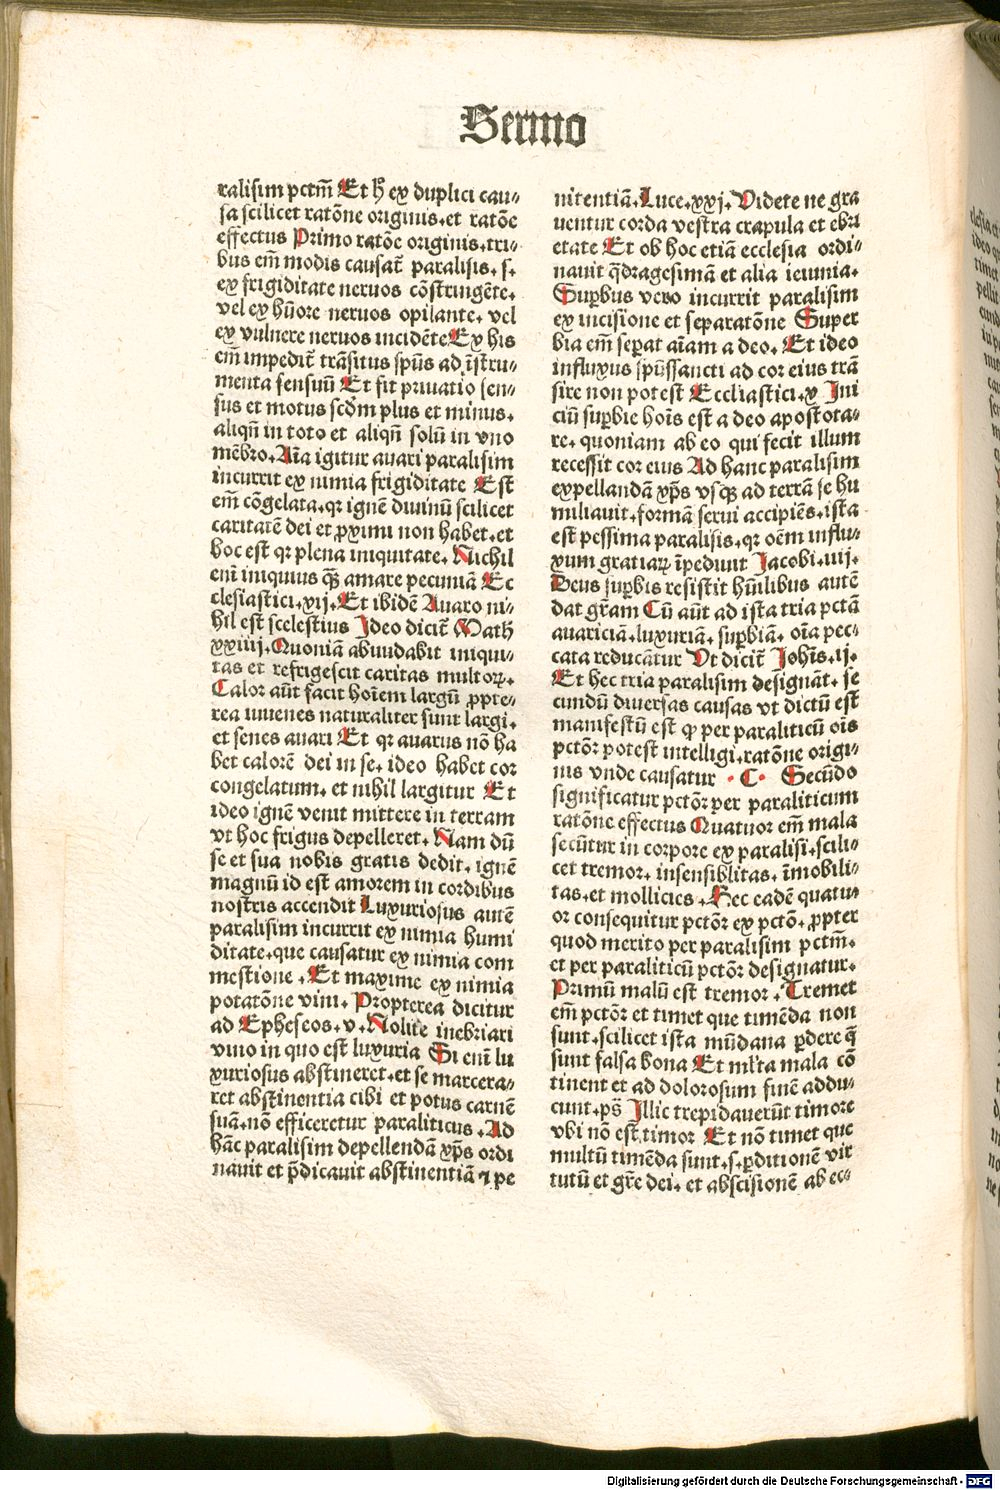 Sermo
ralisim pctm̄ Et h̄ ex duplici cau⸗
sa scilicet ratōne originis. et ratōe
effectus Primo ratōe originis. tri⸗
bus em̄ modis causat᷑ paralisis. s.
ex frigiditate neruos cōstringēte.
vel ex hūore neruos opilante. vel
ex vulnere neruos incidēte Ex his
em̄ impedit᷑ trāsitus sp̄us ad īstru⸗
menta sensuū Et fit priuatio sen⸗
sus et motus scd̄m plus et minus.
aliqn̄ in toto et aliqn̄ solū in vno
mēbro. Aīa igitur auari paralisim
incurrit ex nimia frigiditate Est
em̄ cōgelata. qr ignē diuinū scilicet
caritatē dei et ꝓximi non habet. et
hoc est qr plena iniquitate. Nichil
enī iniquius qꝫ amare pecuniā Ec
clesiastici. xij. Et ibidē Auaro ni⸗
hil est scelestius Ideo dicit᷑ Math
xxiiij. Quoniā abundabit iniqui⸗
tas et refrigescit caritas multoꝝ.
Calor aūt facit hoīem largū ꝓpte⸗
rea iuuenes naturaliter sunt largi.
et senes auari Et qr auarus nō ha
bet calorē dei in se. ideo habet cor
congelatum. et nihil largitur Et
ideo ignē venit mittere in terram
vt hoc frigus depelleret. Nam dū
se et sua nobis gratis dedit. ignē
magnū id est amorem in cordibus
nostris accendit Luxuriosus autē
paralisim incurrit ex nimia humi
ditate. que causatur ex nimia com
mestione. Et maxime ex nimia
potatōne vini. Propterea dicitur
ad Epheseos. v. Nolite inebriari
vino in quo est luxuria Si enī lu
xuriosus abstineret. et se marcera⸗
ret abstinentia cibi et potus carnē
suā. nō efficeretur paraliticus. Ad
hāc paralisim depellendā xp̄s ordi
nauit et p̄dicauit abstinentiā ⁊ pe
nitentiā. Luce. xxj. Videte ne gra
uentur corda vestra crapula et ebri
etate Et ob hoc etiā ecclesia ordi⸗
nauit q̄dragesimā et alia ieiunia.
Suꝑbus vero incurrit paralisim
ex incisione et separatōne Super
bia em̄ seꝑat aīam a deo. Et ideo
influxus sp̄ussancti ad cor eius trā
sire non potest Eccliastici. x Ini
ciū suꝑbie hoīs est a deo apostota⸗
re. quoniam ab eo qui fecit illum
recessit cor eius Ad hanc paralisim
expellandā xp̄s vsqꝫ ad terrā se hu
miliauit. formā serui accipiēs. ista
est pessima paralisis. qr oēm influ⸗
xum gratiaꝝ īpediunt Jacobi. iiij.
Deus suꝑbis resistit hūilibus autē
dat gr̄am Cū aūt ad ista tria pctā
auariciā. luxuriā. suꝑbiā. oīa pec⸗
cata reducātur Vt dicit᷑ Johīs. ij.
Et hec tria paralisim designāt. se
cundū diuersas causas vt dictū est
manifestū est ꝙ per paraliticū oīs
pctōꝛ potest intelligi. ratōne origi⸗
nis vnde causatur . C . Secūdo
significatur pctōꝛ per paraliticum
ratōne effectus Quatuor em̄ mala
secūtur in corpore ex paralisi. scili⸗
cet tremor. insensiblitas. īmobili⸗
tas. et mollicies. Hec eadē quatu⸗
or consequitur pctōꝛ ex pctō. ꝓpter
quod merito per paralisim pctm̄.
et per paraliticū pctōꝛ designatur.
Primū malū est tremor. Tremet
em̄ pctōꝛ et timet que timēda non
sunt. scilicet ista mūdana ꝑdere q̄
sunt falsa bona Et ml̄ta mala cō
tinent et ad dolorosum finē addu⸗
cunt. ps̄ Illic trepidauerūt timore
vbi nō est timor Et nō timet que
multū timēda sunt. s. ꝑditionē vir
tutū et gr̄e dei. et abscisionē ab ec⸗
Digitalisierung gefördert durch die Deutsche Forschungsgemeinschaft - DFG